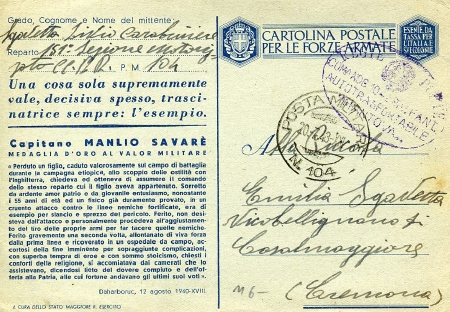 Grado, Cognome e Nome del mittente:
Sgaletta Livio Carabiniere
Reparto 151ª Sezione
P. M. 104
Una cosa sola supremamente
vale, decisiva spesso, trasci-
natrice sempre: l'esempio.
Capitano MANLIO SAVARÈ
MEDAGLIA D'ORO AL VALOR MILITARE
"Perduto un figlio, caduto valorosamente sul campo di battaglia
durante la campagna etiopica, allo scoppio delle ostilità con
l'Inghilterra, chiedeva ed otteneva di assumere il comando
dello stesso reparto cui il figlio aveva appartenuto. Sorretto
da ardente amor patrio e da giovanile entusiasmo, nonostante
i 55 anni di età ed un fisico già duramente provato, in un
cruento attacco contro le linee nemiche fortificate, era di
esempio per slancio e sprezzo del pericolo. Ferito, non desi-
steva dall'attacco e personalmente procedeva all'aggiustamen-
to del tiro delle proprie armi per far tacere quelle nemiche.
Ferito gravemente una seconda volta, allontanato di viva forza
dalla prima linea e ricoverato in un ospedale da campo, ac-
cortosi della fine imminente per sopraggiunte complicazioni,
con superba tempra di eroe e con sommo stoicismo, chiesti i
conforti della religione, si accomiatava dai camerati che lo
assistevano, dicendosi lieto del dovere compiuto e dell'of-
ferta alla Patria, alle cui fortune andavano gli ultimi suoi voti".
Daharboruc, 12 agosto 1940-XVIII.
A CURA DELLO STATO MAGGIORE R. ESERCITO
CARTOLINA POSTALE
PER LE FORZE ARMATE
ESENTE DA
TASSA PER
L'ITALIA E
POSTA MILITARE
N. 104
Alla
Emilia Sgaletta
Vicobellignano di
Casalmaggiore
(Cremona)